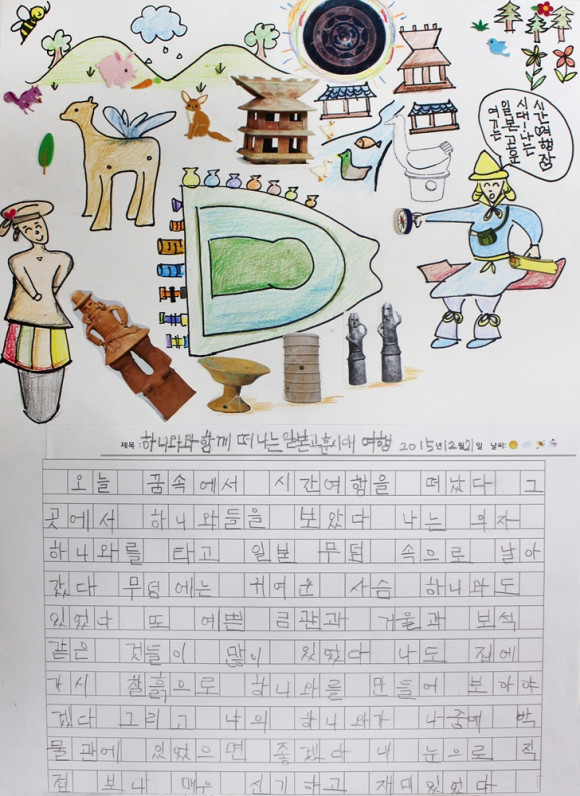 시간여행잠
시대! 나는
일본 고훈
여기는
제목: 하니와와 함께 떠나는 일본고훈시대 여행 2015년 12월 21일 날씨:
오늘 꿈속에서 시간여행을 떠났다 그
곳에서 하니와들을 보았다 나는 의자
하니와를 타고 일본 무덤 속으로 날아
갔다 무덤에는 귀여운 사슴 하니와도
있었다 또 예쁜 금관과 거울과 보석
같은 것들이 많이 있었다 나도 집에
가서 찰흙으로 하니와를 만들어 보아야
겠다 그리고 나의 하니와가 나중에 박
물관에 있었으면 좋겠다 내 눈으로 직
전 보니 매우 신기하고 재미있었다